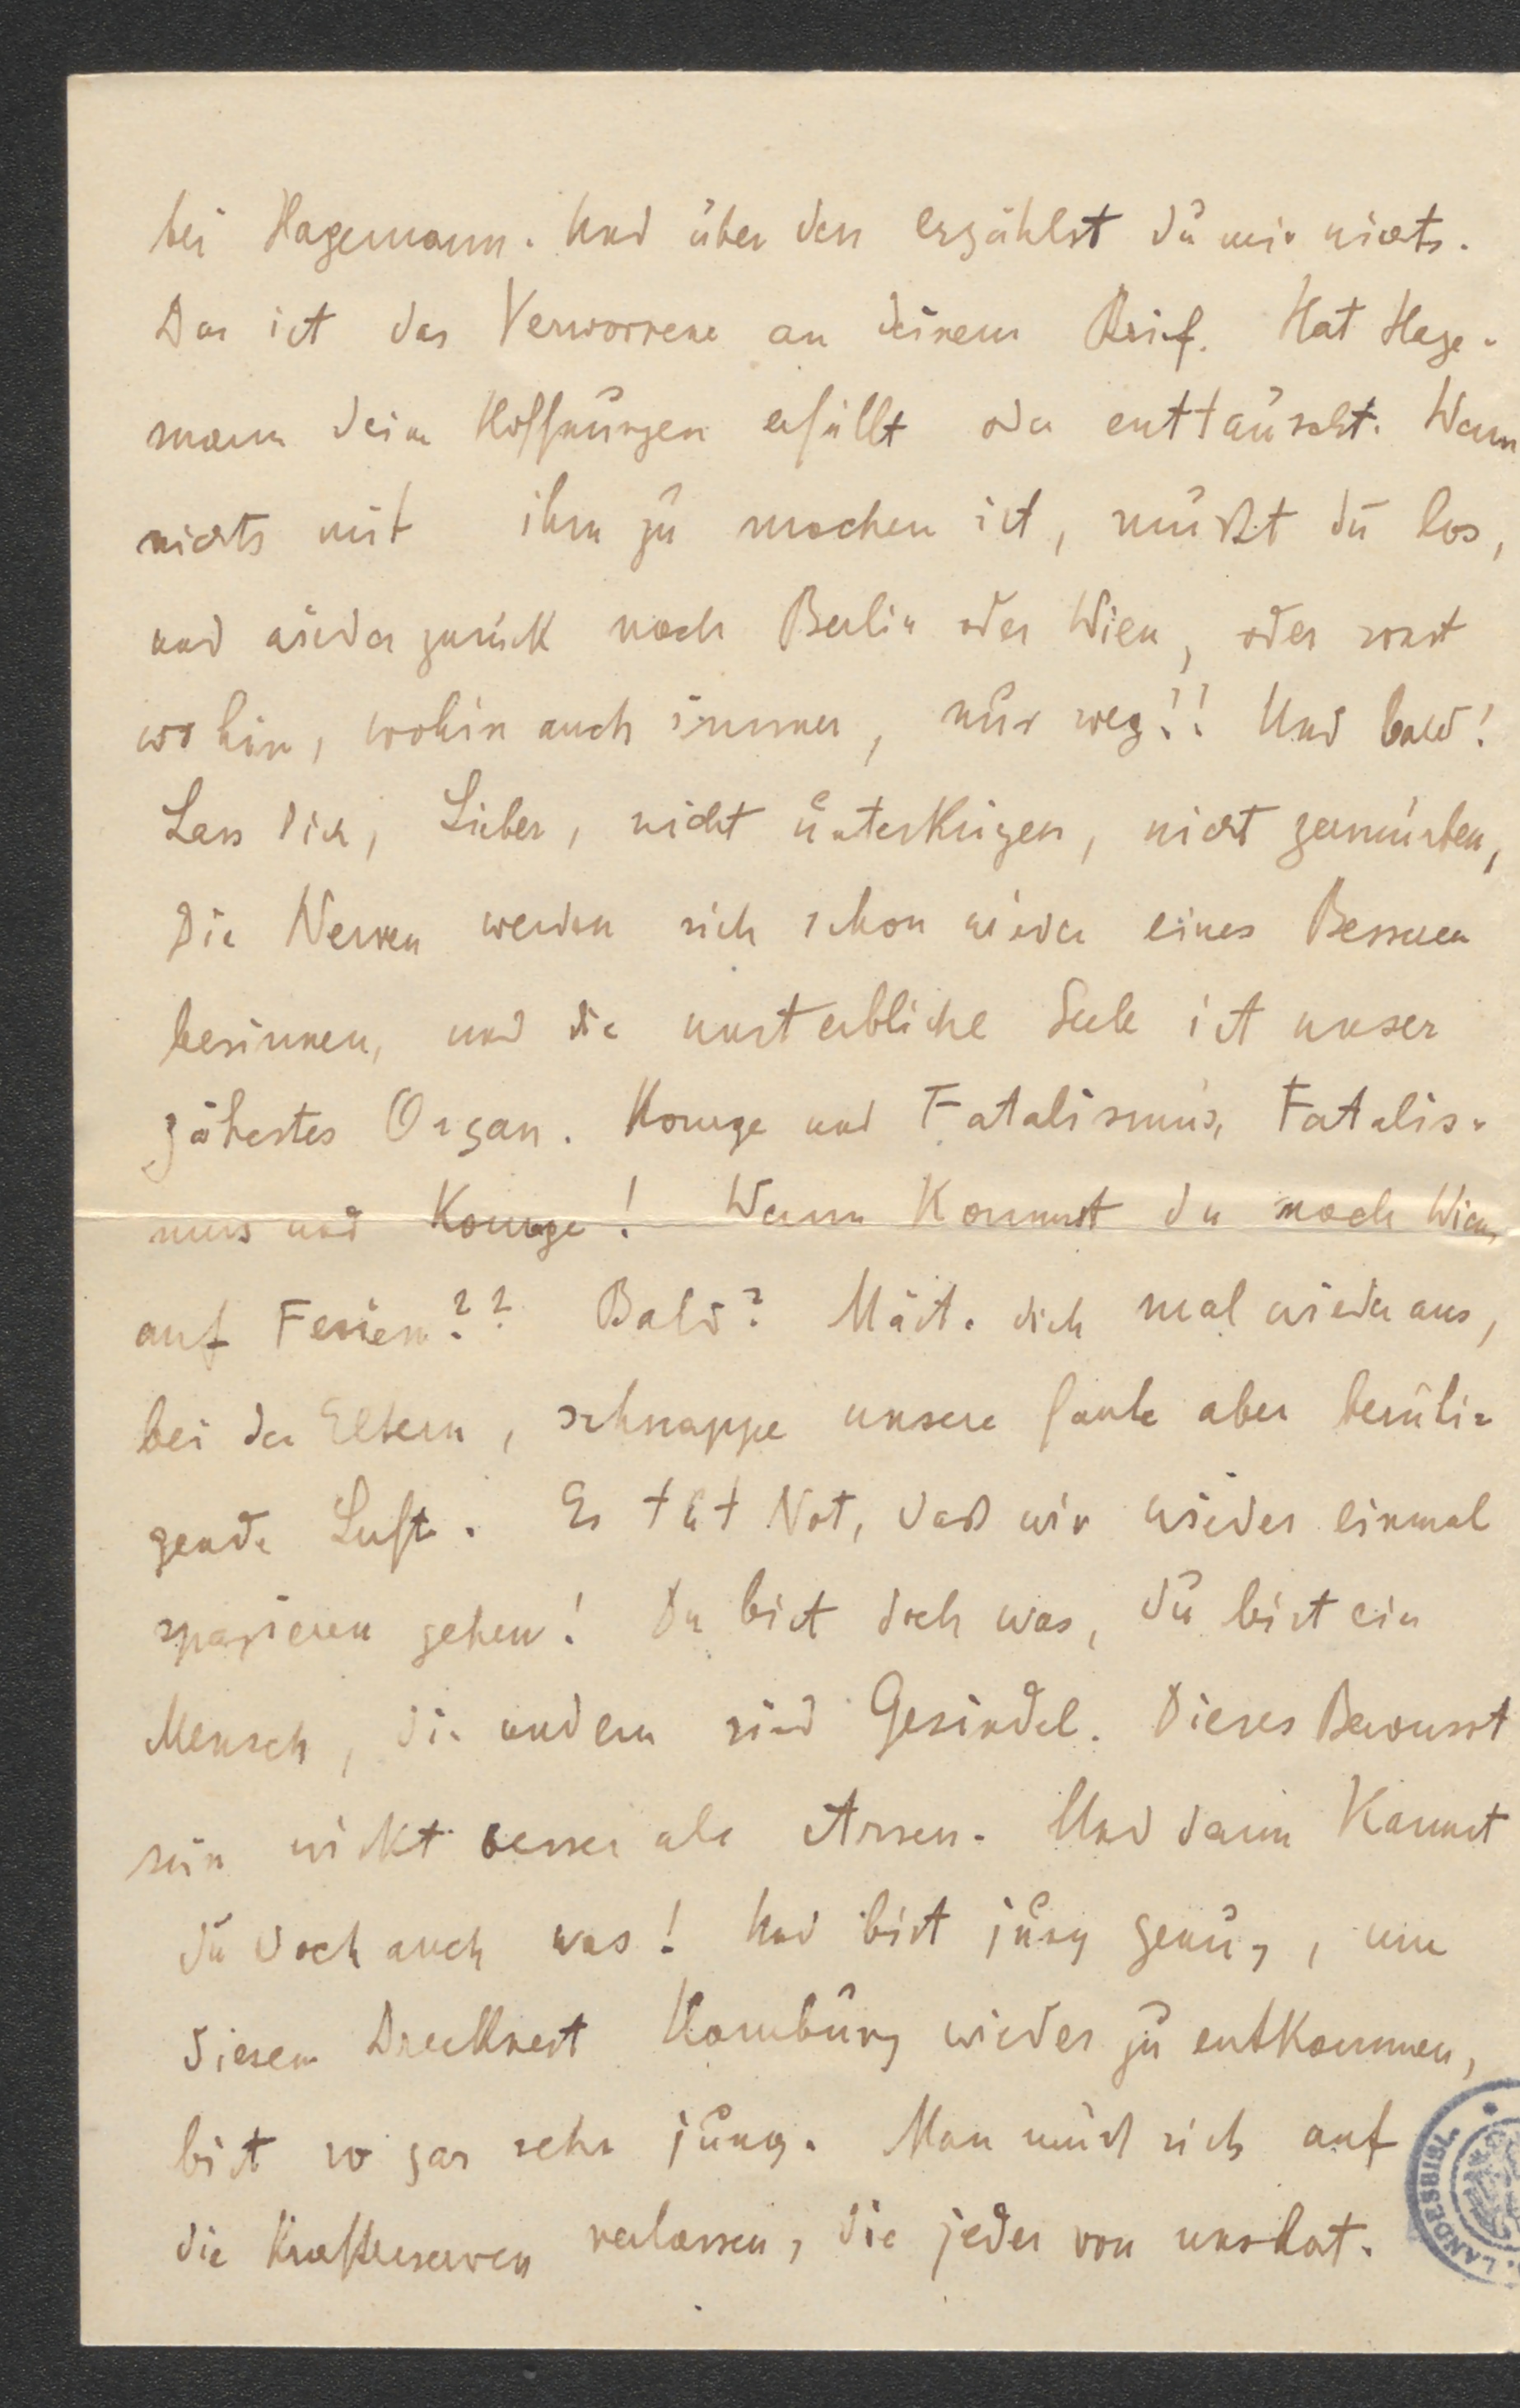 bei Hagemann. Und über den erzählst du mir nichts.
Das ist das Verworrene an deinem Brief. Hat Hage-
mann deine Hoffnungen erfüllt oder enttäuscht. Wenn
nichts mit ihm zu machen ist, mußt du los,
und wieder zurück nach Berlin oder Wien, oder sonst
wohin, wohin auch immer, nur weg!! Und bald!
Lass Dich, Lieber, nicht unterkriegen, nicht zermürben,
Die Nerven werden sich schon wieder eines Besseren
besinnen, und die unsterbliche Seele ist unser
zähestes Organ. Kourage und Fatalismus, Fatalis-
mus und Kourage! Wann kommst du nach Wien,
auf Ferien?? Bald? Mäste dich mal wieder aus,
bei den Eltern, schnappe unsere faule aber beruhi-
gende Luft. Es tut Not, daß wir wieder einmal
spazieren gehen! Du bist doch was, du bist ein
Mensch, die andern sind Gesindel. Dieses Bewusst
sein wirkt besser als Arsen. Und dann kannst
du doch auch was! Und bist jung genug, um
diesem Drecknest Hamburg wieder zu entkommen,
bist sogar sehr jung. Man muß sich auf
die Kraftreserven verlassen, die jeder von uns hat.
LANDESBIBL.